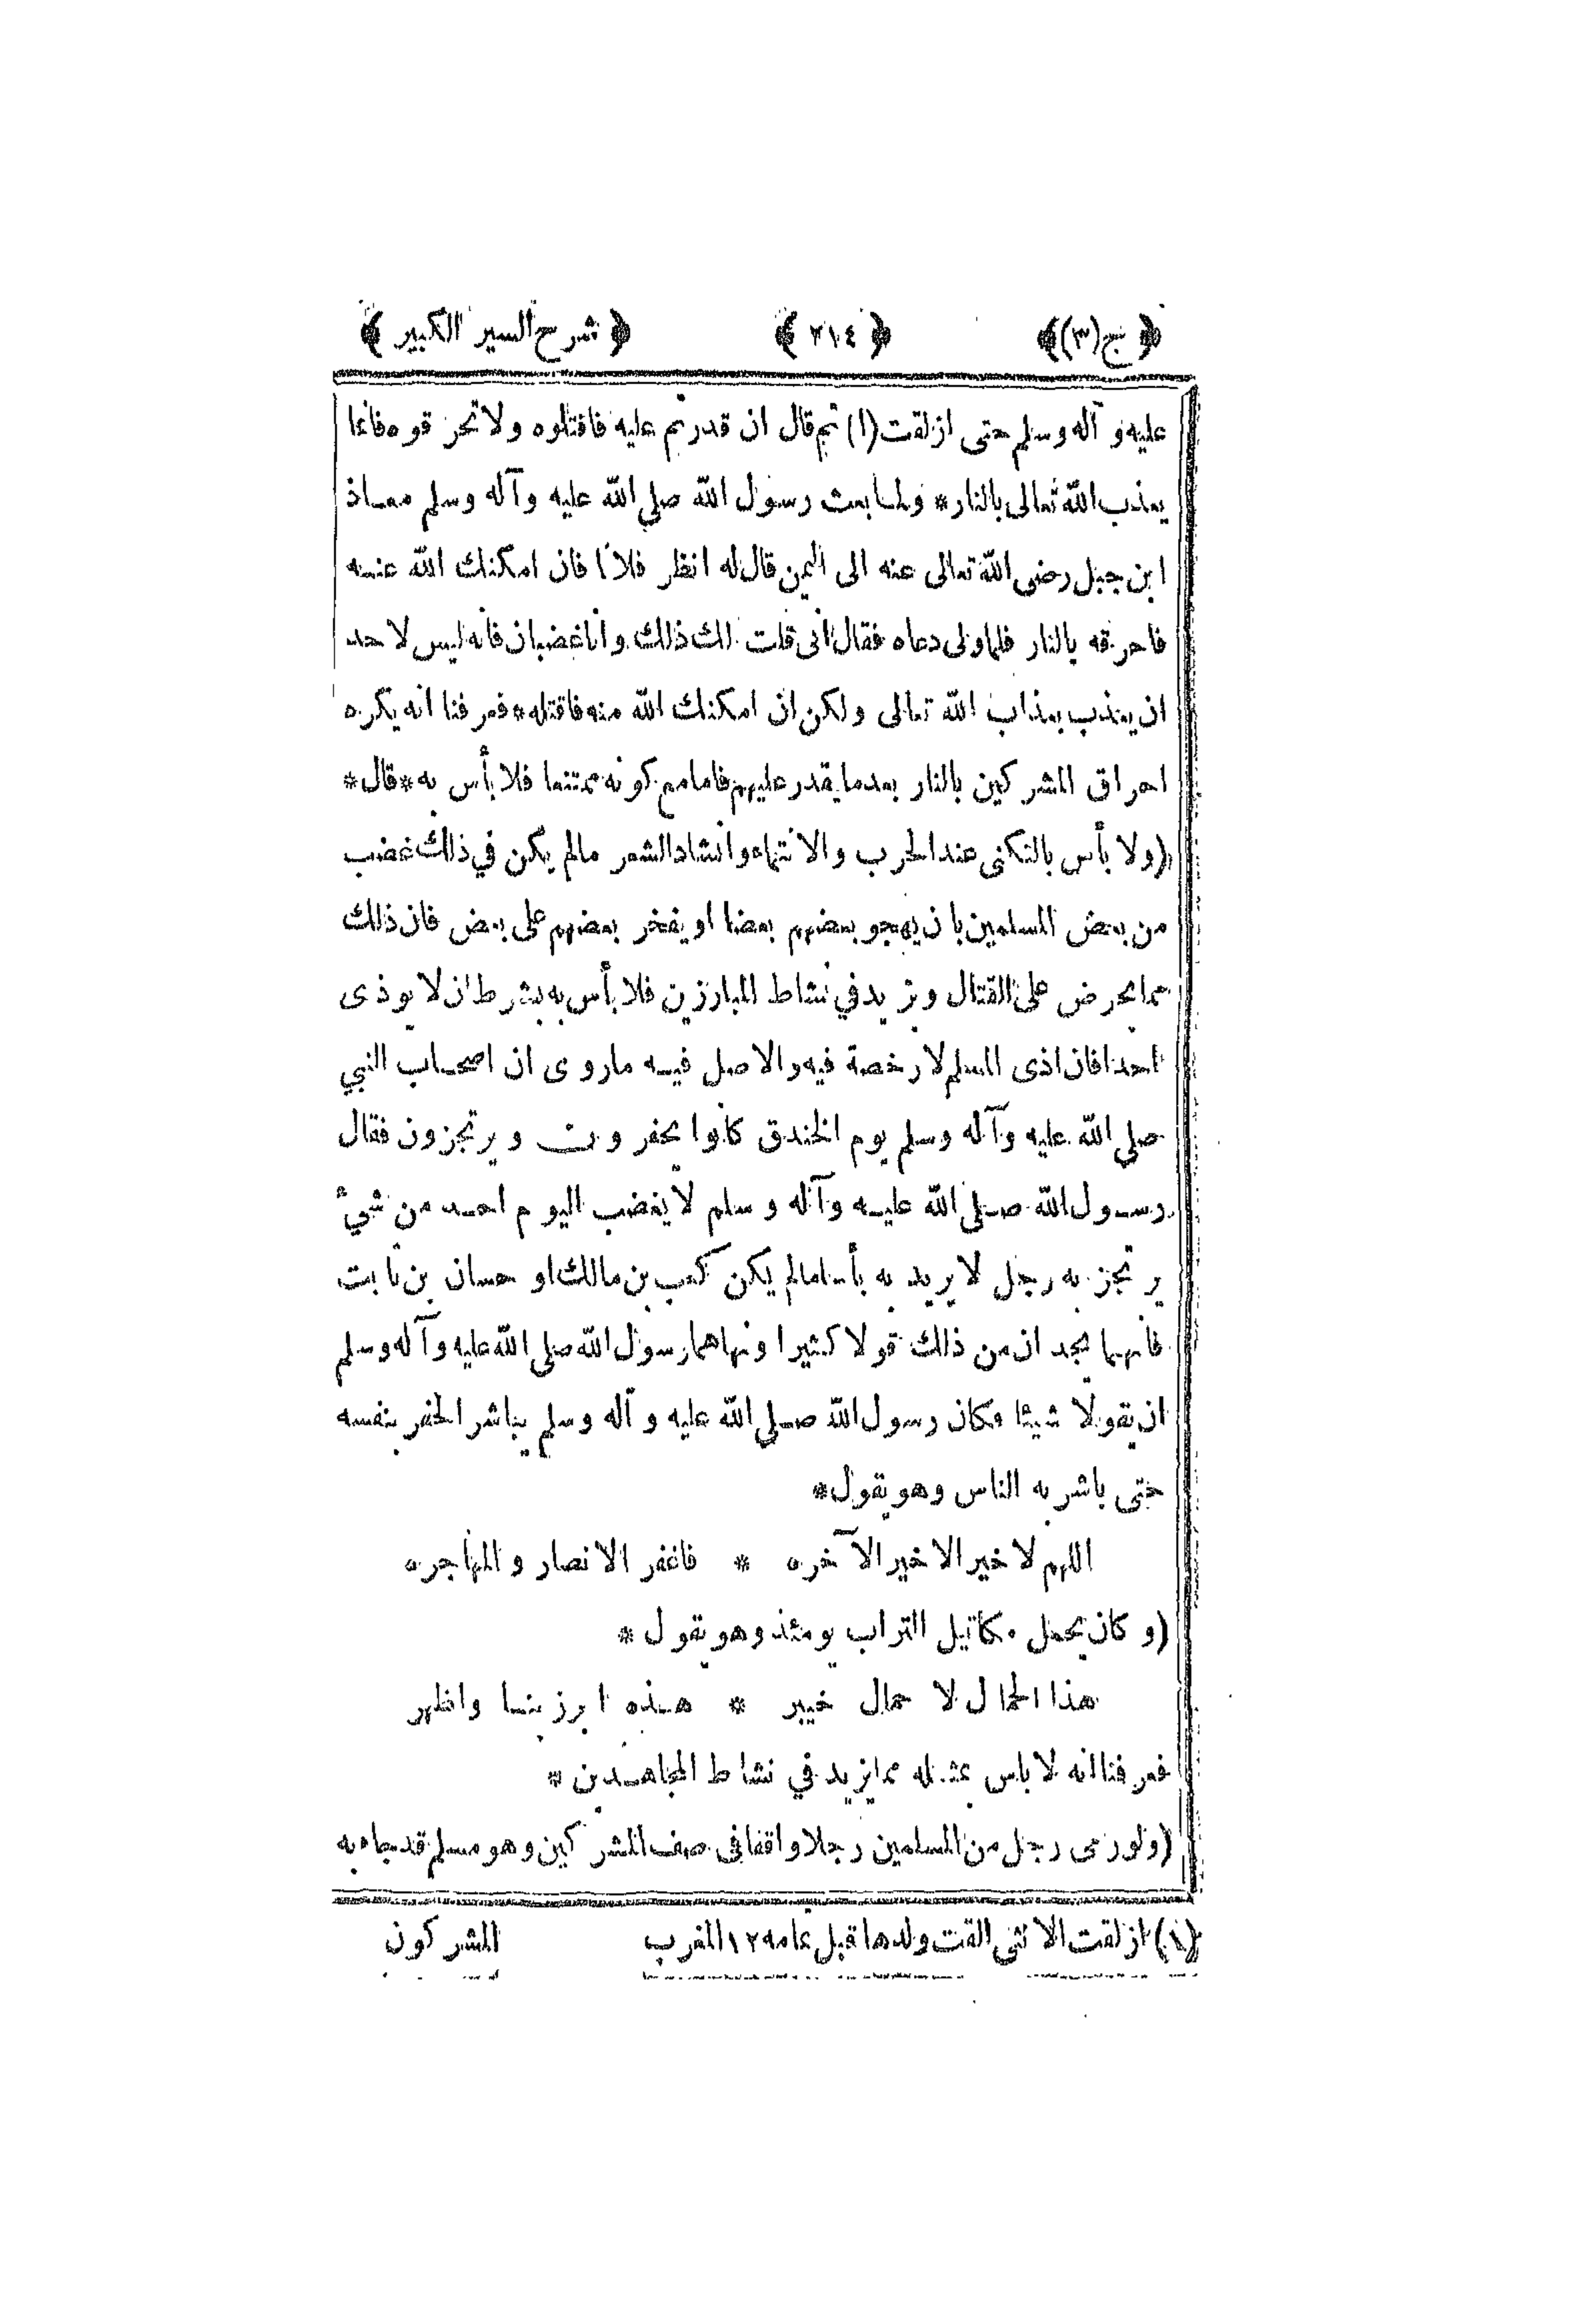 ﴿ ج (٣) ﴾ ﴿ ٢١٤ ﴾ ﴿ شرح السير الكبير ﴾
عليه و آله وسلم حتى ازلقت (١) ثم قال ان قدرتم عليه فاقتلوه ولا تحرقوه فانما
يعذب الله تعالى بالنار * ولما بعث رسول الله صلى الله عليه وآله وسلم معاذ
ابن جبل رضى الله تعالى عنه الى اليمن قال له انظر فلانا فان امكنك الله عنه
فاحرقه بالنار فلما ولى دعاه فقال انى قلت لك ذلك وانا غضبان فانه ليس لاحد
ان يعذب بعذاب الله تعالى ولكن ان امكنك الله منه فاقتله * فعرفنا انه يكره
احراق المشركين بالنار بعد ما يقدر عليهم فاما مع كونه ممتنعا فلا بأس به * قال *
(ولا بأس بالتكنى عند الحرب والانتماء وانشاد الشعر مالم يكن في ذلك غضب
من بعض المسلمين بان يهجو بعضهم بعضا او يفخر بعضهم على بعض فان ذلك
مما يحرض على القتال ويزيد في نشاط المبارزين فلا بأس به بشرط ان لا يوذى
احدا فان اذى المسلم لا رخصة فيه والاصل فيه ماروى ان اصحاب النبي
صلى الله عليه وآله وسلم يوم الخندق كانوا يحفرون ويرتجزون فقال
رسول الله صلى الله عليه وآله وسلم لا يغضب اليوم احد من شيئ
يرتجز به رجل لا يريد به بأسا مالم يكن كعب بن مالك او حسان بن ثابت
فانهما يجدان من ذلك قولا كثيرا ونهاهما رسول الله صلى الله عليه وآله وسلم
ان يقولا شيئا فكان رسول الله صلى الله عليه وآله وسلم يباشر الحفر بنفسه
حتى باشر به الناس وهو يقول *
اللهم لا خير الا خير الآخره * فاغفر الانصار والمهاجره
(وكان يحمل مكاتيل التراب يومئذ وهو يقول *
هذا الجمال لا جمال خيبر * هذه ابرز بنا واظهر
فعرفنا انه لا باس بمثله مما يزيد في نشاط المجاهدين *
(ولو رمى رجل من المسلمين رجلا واقفا فى صف المشركين وهو مسلم قد جاء به
(١) ازلقت الانثى القت ولدها قبل عامه ١٢ المغرب المشركون